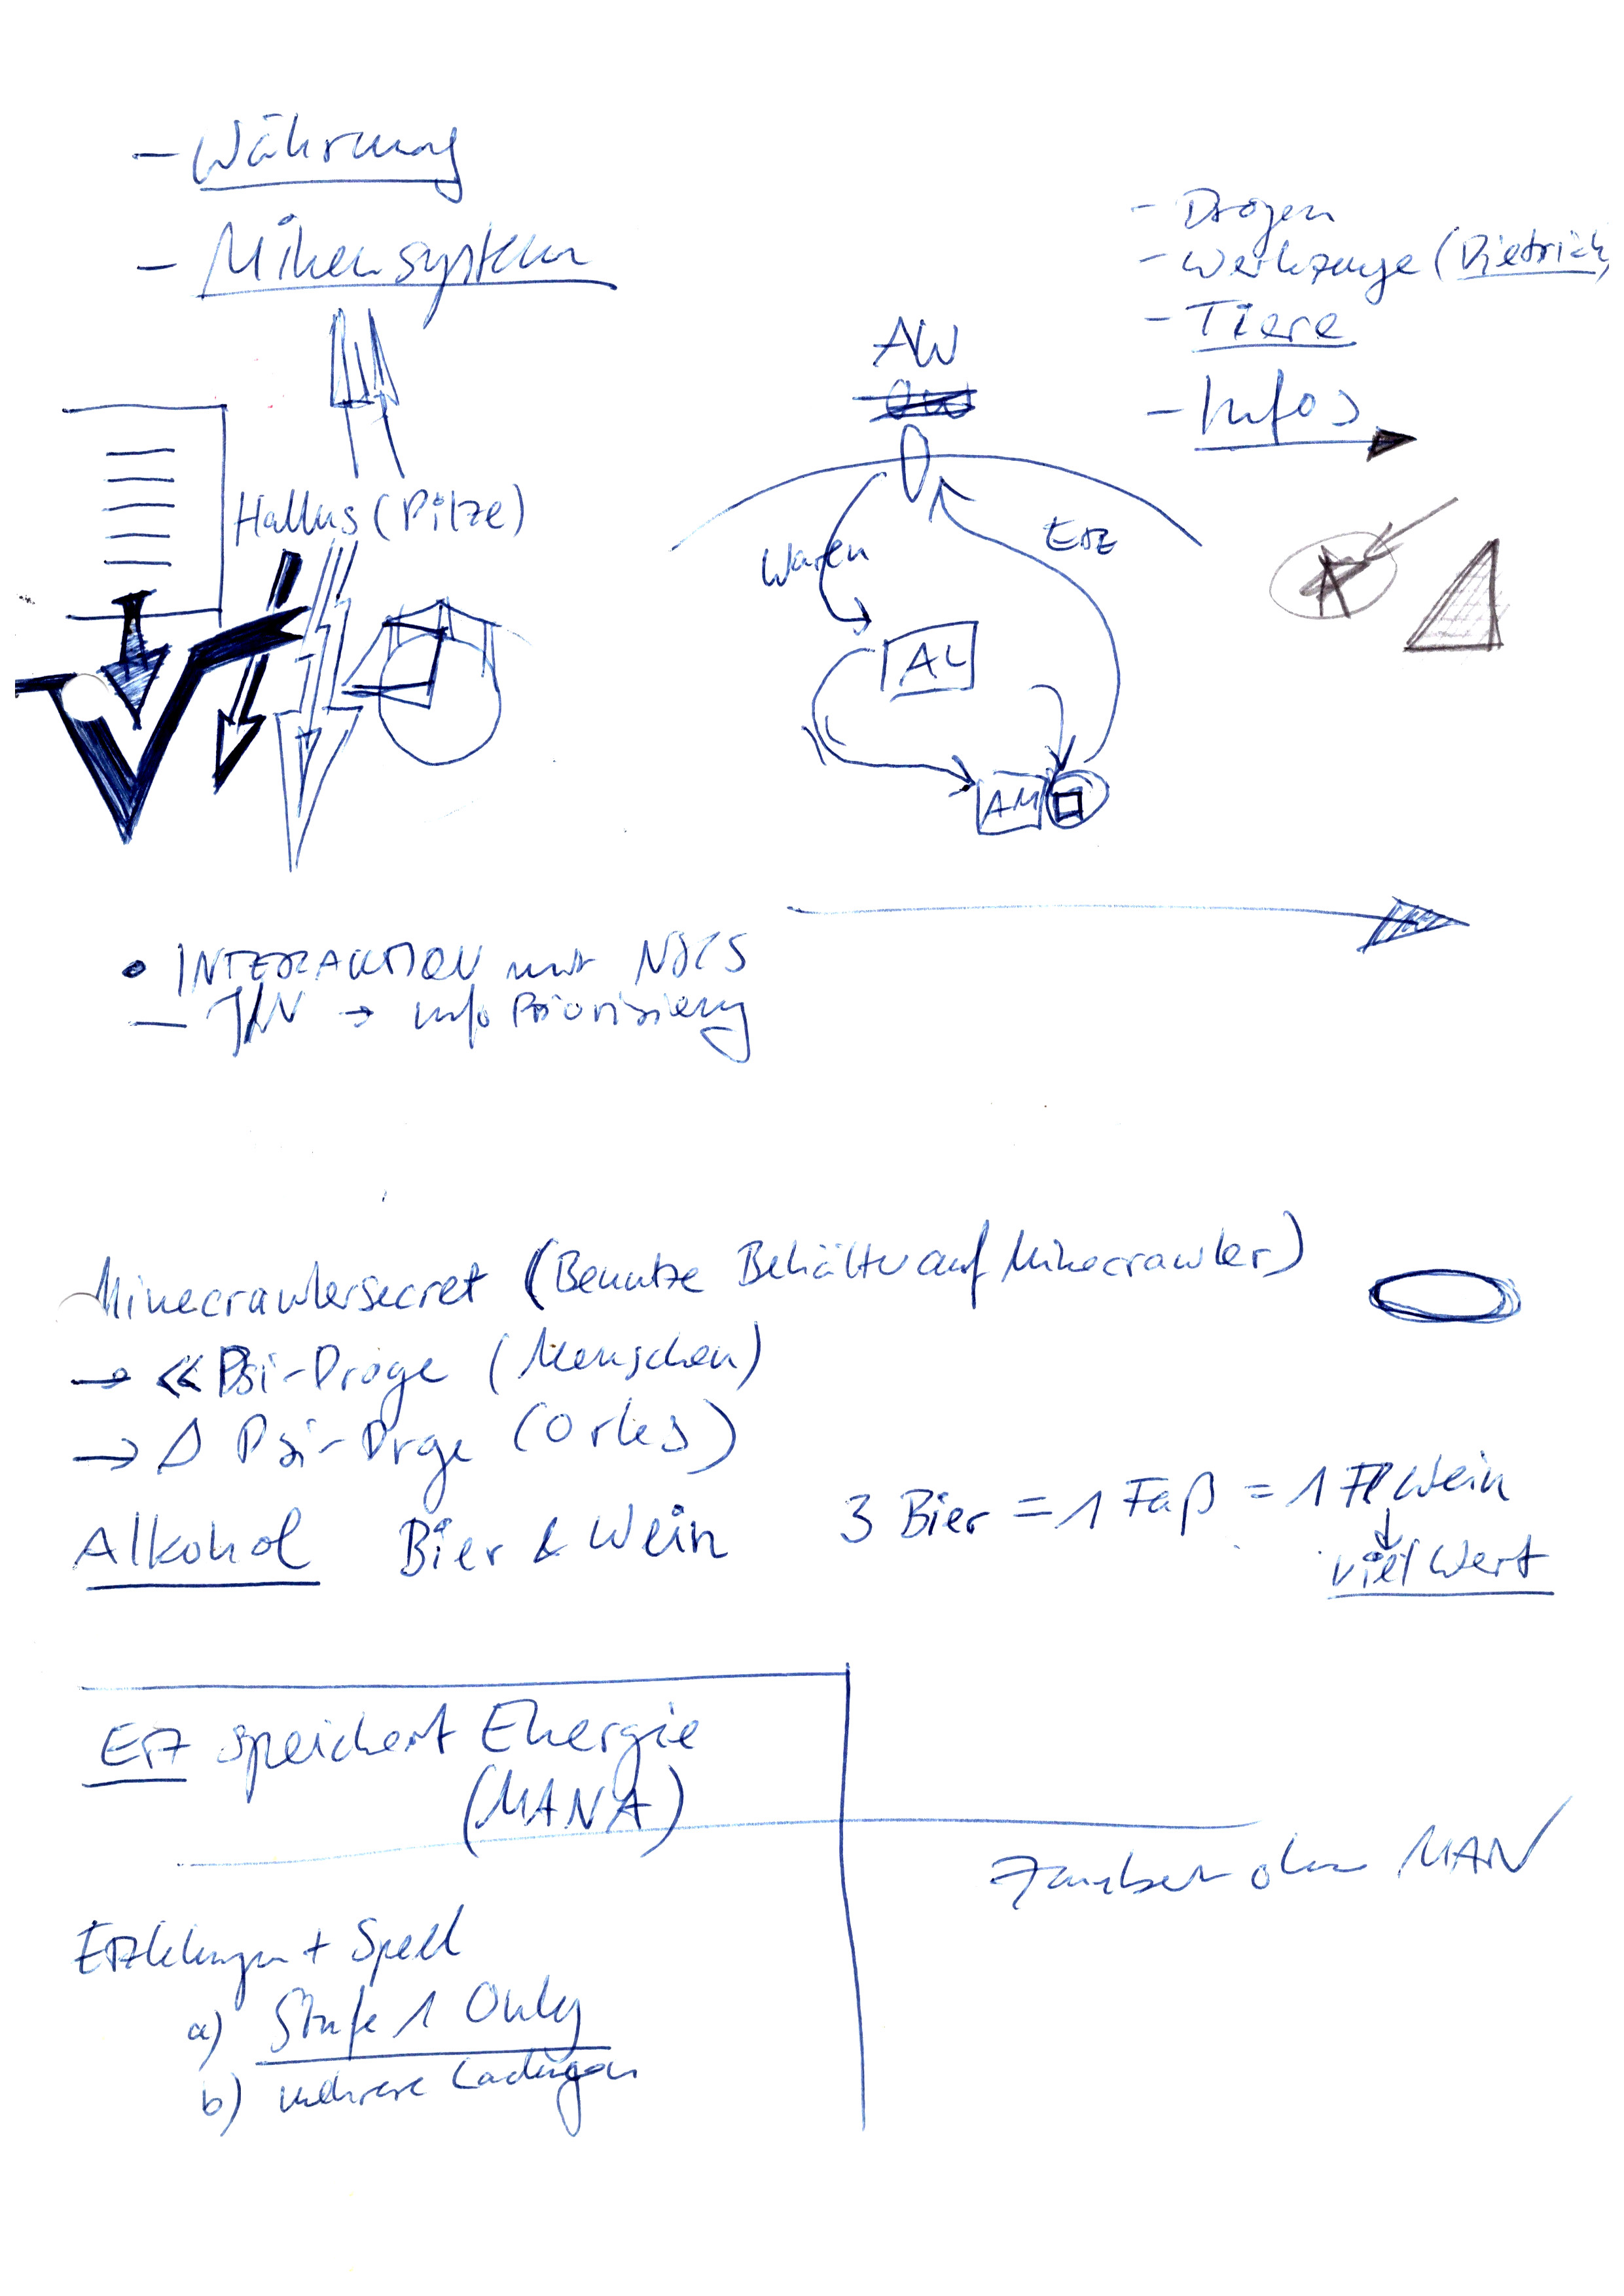 - Währung
- Minensystem
- Drogen
- Werkzeuge (Dietrich)
- Tiere
- Infos
AW
Hallus (Pilze)
Waren
Erz
AL
AM
• INTERAKTION mit NSCS
— J/N → Info Priorisierung
Minecrawlersecret (Benutze Behälter auf Minecrawler)
→ << Psi-Droge (Menschen)
→ Δ Psi-Drge (Orks)
Alkohol Bier & Wein
3 Bier = 1 Faß = 1 Fl Wein
↓
viel Wert
Erz speichert Energie
(MANA)
Zauber ohne MAN
Erzklumpen + Spell
a) Stufe 1 Only
b) mehrere Ladungen